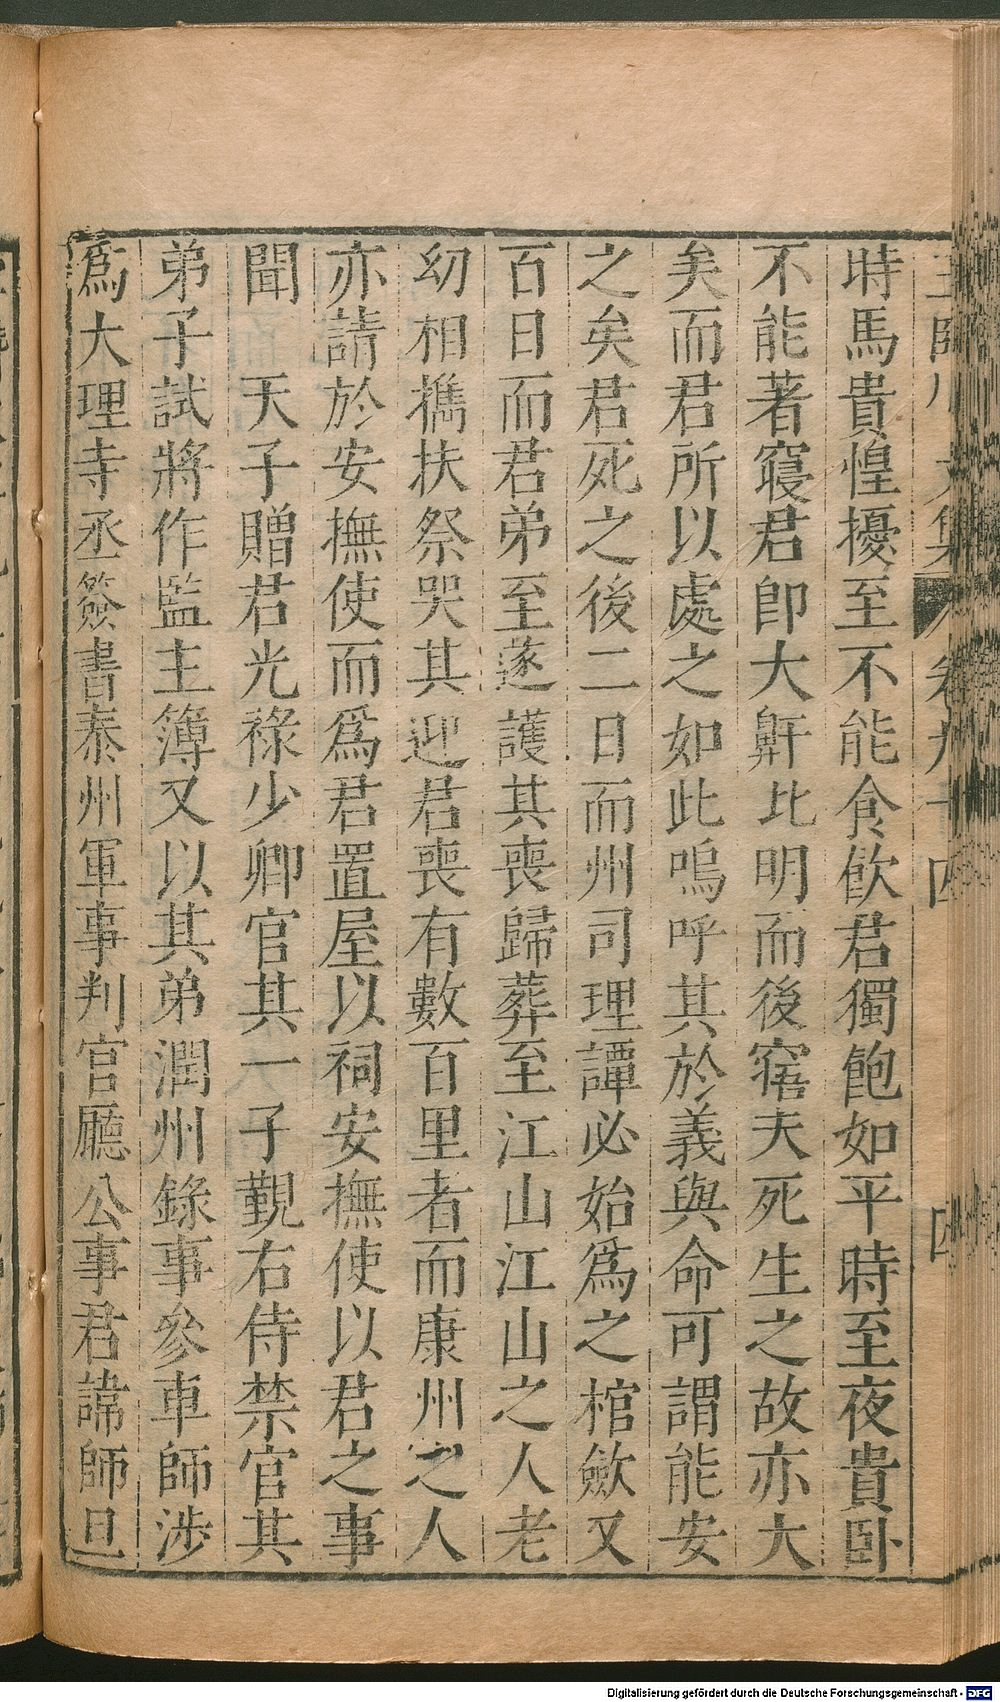 時馬貴惶擾至不能食飲君獨飽如平時至夜貴卧
不能著寢君卽大鼾比明而後寤夫死生之故亦大
矣而君所以處之如此嗚呼其於義與命可謂能安
之矣君死之後二日而州司理譚必始爲之棺歛又
百日而君弟至遂護其喪歸葬至江山江山之人老
幼相擕扶祭哭其迎君喪有數百里者而康州之人
亦請於安撫使而爲君置屋以祠安撫使以君之事
聞　天子贈君光祿少卿官其一子覲右侍禁官其
弟子試將作監主簿又以其弟潤州錄事參軍師涉
爲大理寺丞簽書泰州軍事判官廳公事君諱師旦
Digitalisierung gefördert durch die Deutsche Forschungsgemeinschaft - DFG